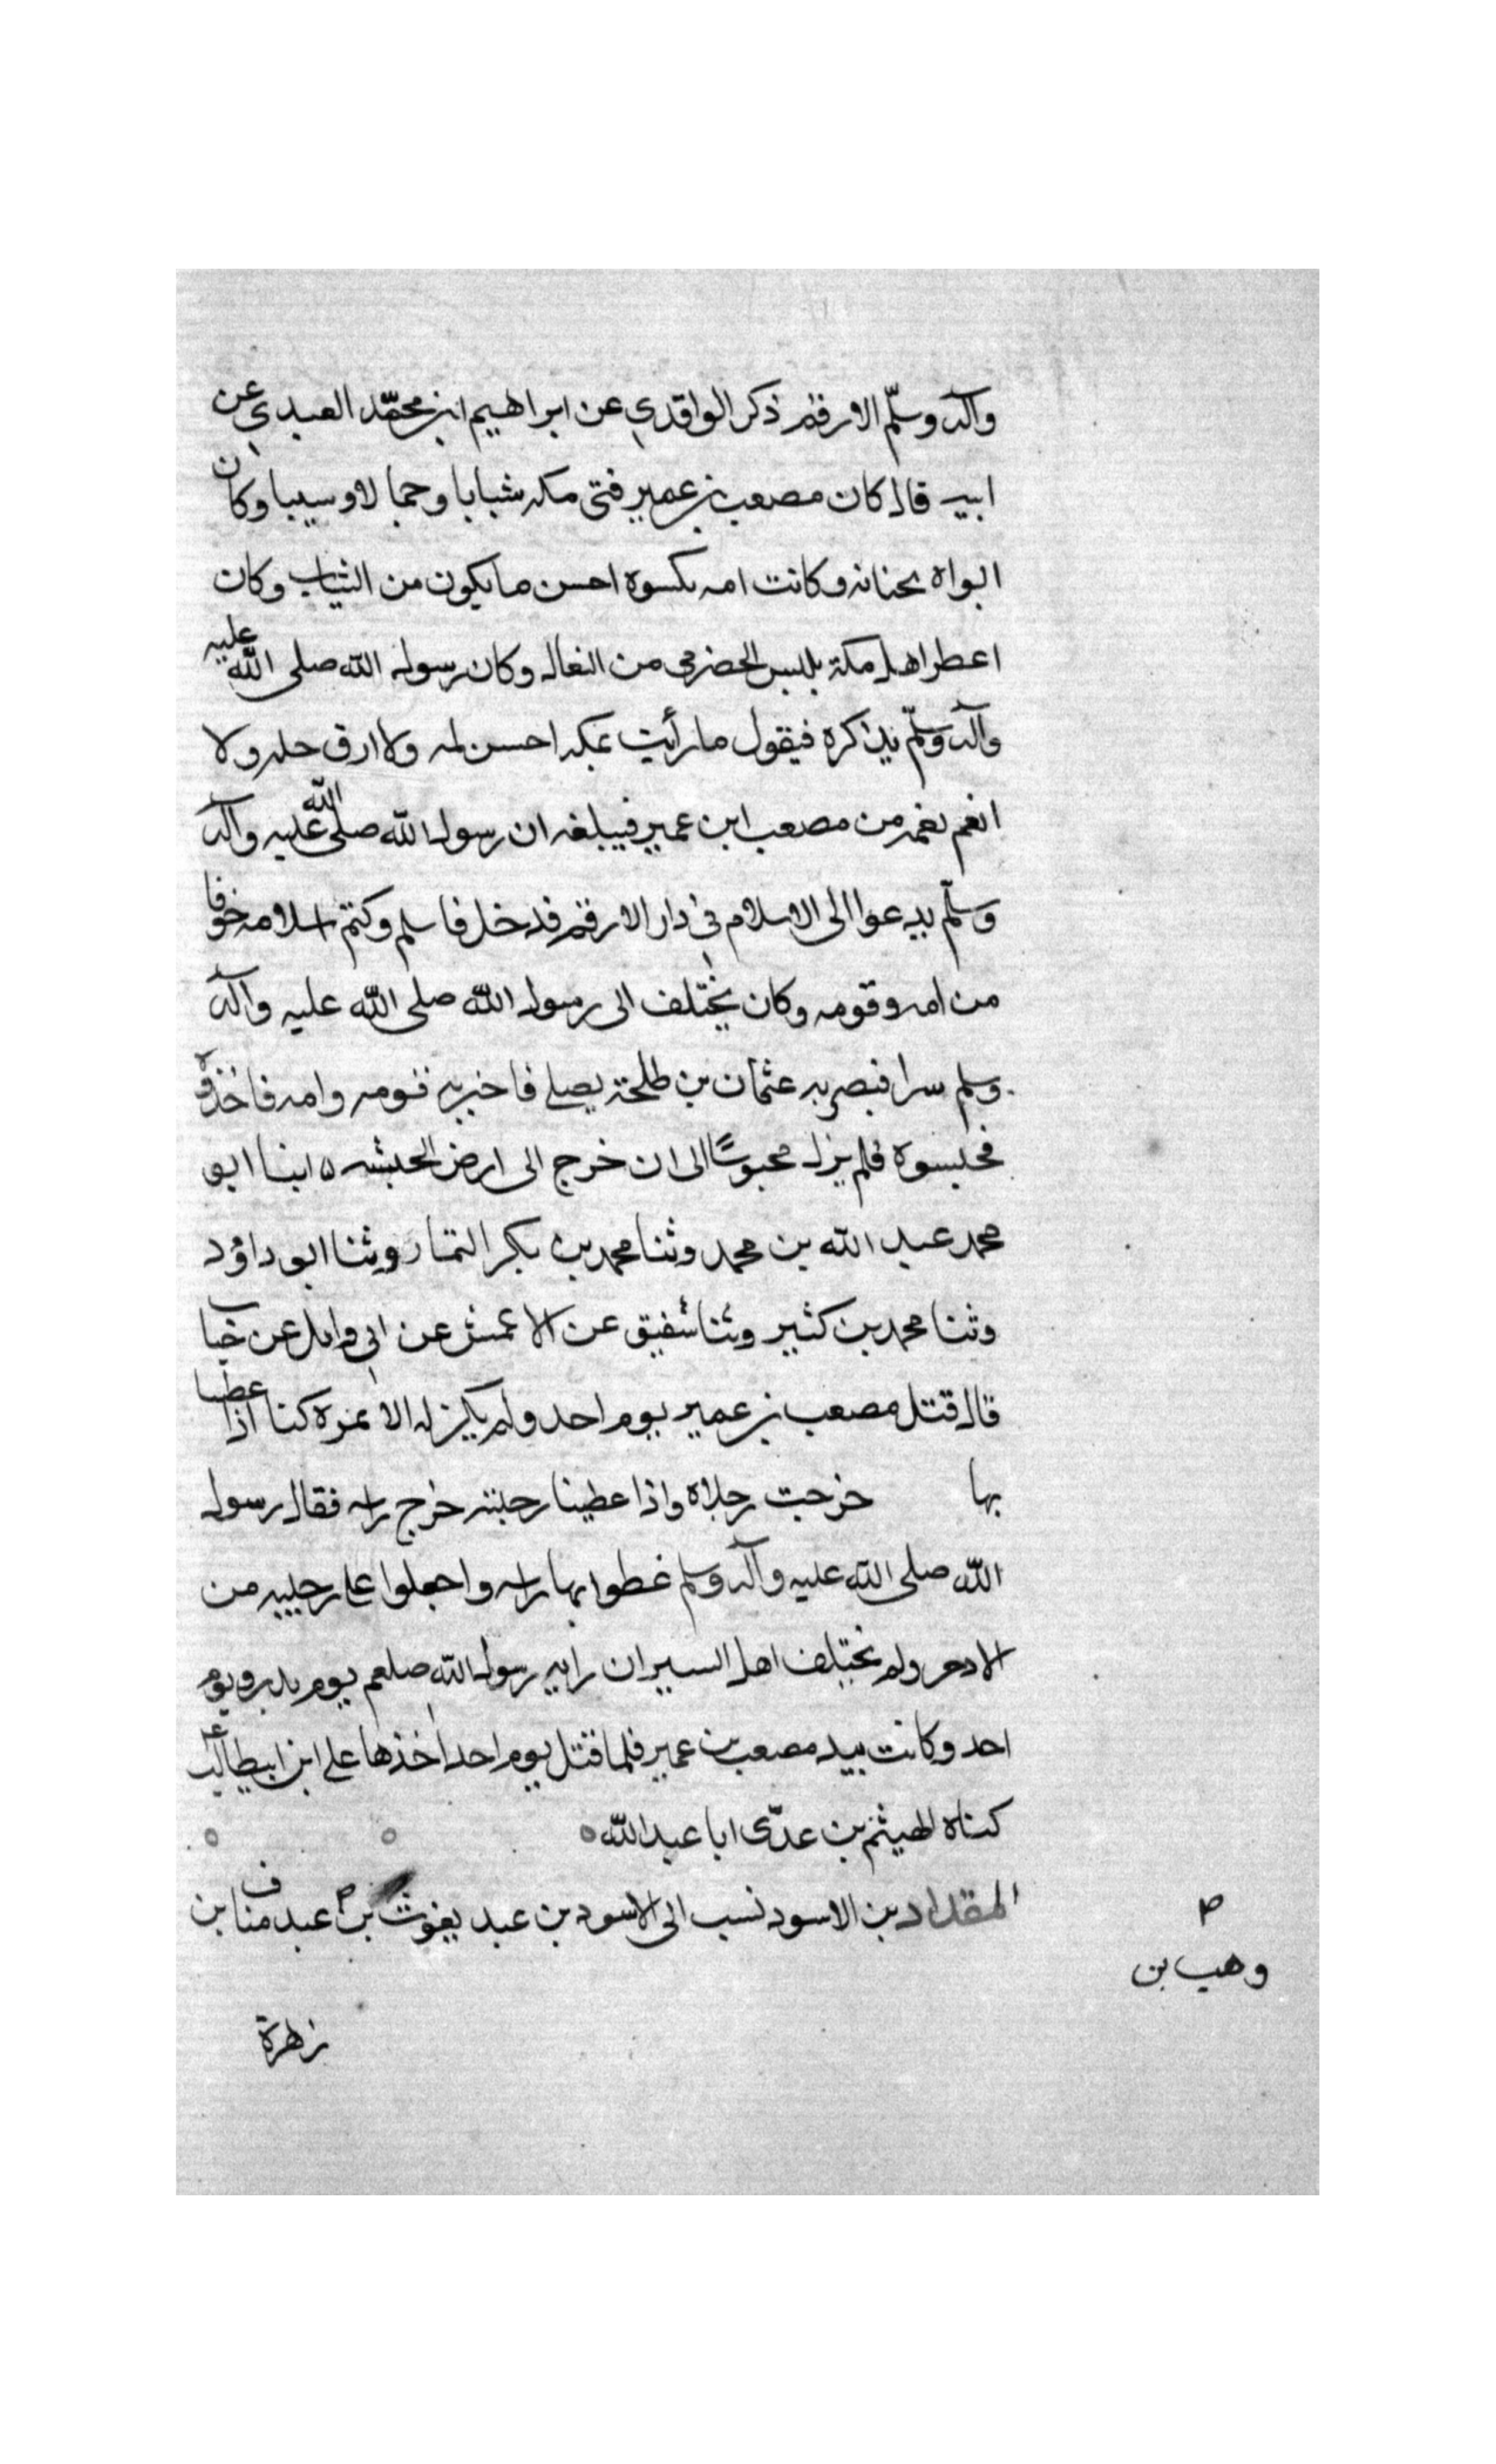 وآله وسلّم الارقم ذكر الواقدي عن ابراهيم ابن محمّد العبدي عن
ابيه قال كان مصعب بن عمير فتى مكه شبابا وجمالا وسيبا وكان
ابواه يحنانه وكانت امه تكسوه احسن ما يكون من الثياب وكان
اعطر اهل مكة يلبس الحضرمى من النعال وكان رسول الله صلى الله عليه
وآله وسلّم يذاكره فيقول ما رأيت بمكه احسن لمه ولا ارق حله ولا
انعم نعمه من مصعب ابن عمير فيبلغه ان رسول الله صلى الله عليه وآله
وسلّم يدعوا الى الاسلام في دار الارقم فدخل فاسلم وكتم اسلامه خوفا
من امه وقومه وكان يختلف الى رسول الله صلى الله عليه وآله
وسلم سرا فبصر به عثمان بن طلحة يصلي فاخبر به قومه وامه فاخذوه
فحبسوه فلم يزل محبوسًا الى ان خرج الى ارض الحبشه ٥ ابنا ابو
محمد عبد الله بن محمد وثنا محمد بن بكر التمار وثنا ابو داؤد
وثنا محمد بن كثير وثنا شفيق عن الاعمش عن ابي وايل عن خباب
قال قتل مصعب بن عمير يوم احد ولم يكن له الا نمره كنا اذا عطينا
بها خرجت رجلاه واذا عطينا رجليه خرج راسه فقال رسول
الله صلى الله عليه وآله وسلم غطوا بها راسه واجعلوا على رجليه من
الادخر ولم تختلف اهل السير ان رايه رسول الله صلعم يوم بدر ويوم
احد وكانت بيد مصعب بن عمير فلما قتل يوم احد اخذها على ابن ابيطالب ع
كناه الهيثم بن عدّى ابا عبد الله
المقداد بن الاسود نسب الى الاسود بن عبد يغوث بن عبد مناف بن
وهيب بن
زهرة